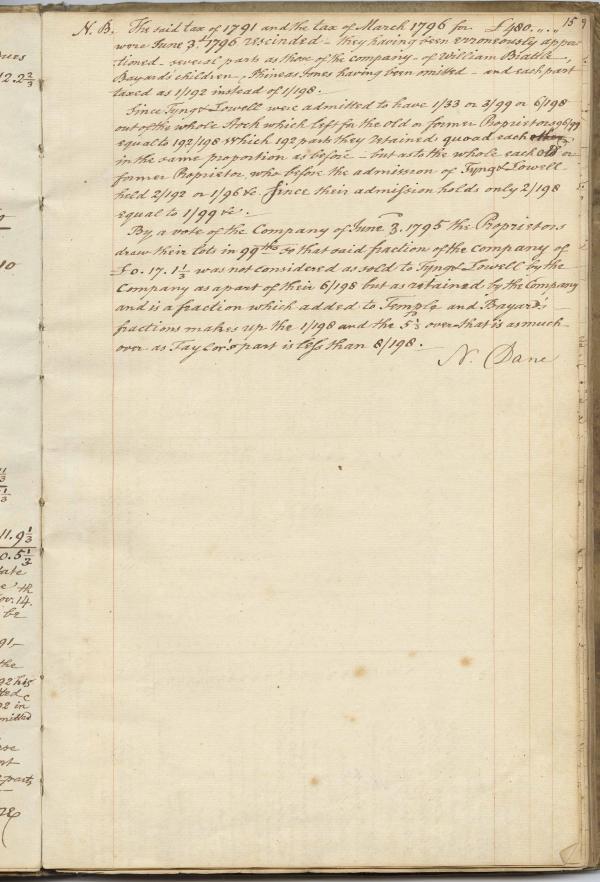 15
N. B. The said tax of 1791 and the tax of March 1796 for £480.,,.,,
were June 3d. 1796 rescinded - they having been erroneously appor
tioned - several parts as those of the company - of William
Bayard's children, Phineas Jones having been omitted - and each part
taxed as 1/192 instead of 1/198.
Since Tyng & Lowell were admitted to have 1/33 or 3/99 or 6/198
out of the whole Stock which left for the old or former Proprietors 96/99
equal to 192/198 which 192 parts they retained, quoad each other
in the same proportion as before - but as to the whole each old or
former Proprietor, who before the admission of Tyng & Lowell
held 2/192 or 1/96 &c Since their admission holds only 2/198
equal to 1/99 &c.
By a vote of the Company of June 3. 1795 the Proprietors
draw their lots in 99ths so that said fraction of the company of
£0. 17. 1 1/3 was not considered as sold to Tyng & Lowell by the
Company as a part of their 6/198 but as retained by the Company
and is a fraction which added to Temple and Bayard's
fractions makes up the 1/198 and the 5 1/3 over that is as much
over as Taylor's part is less than 8/198.
N. Dane
12.2 2/3
10
1/3
11.9 1/3
0.5 1/3
th
Nov. 14.
be
91,-
the
92 in
parts